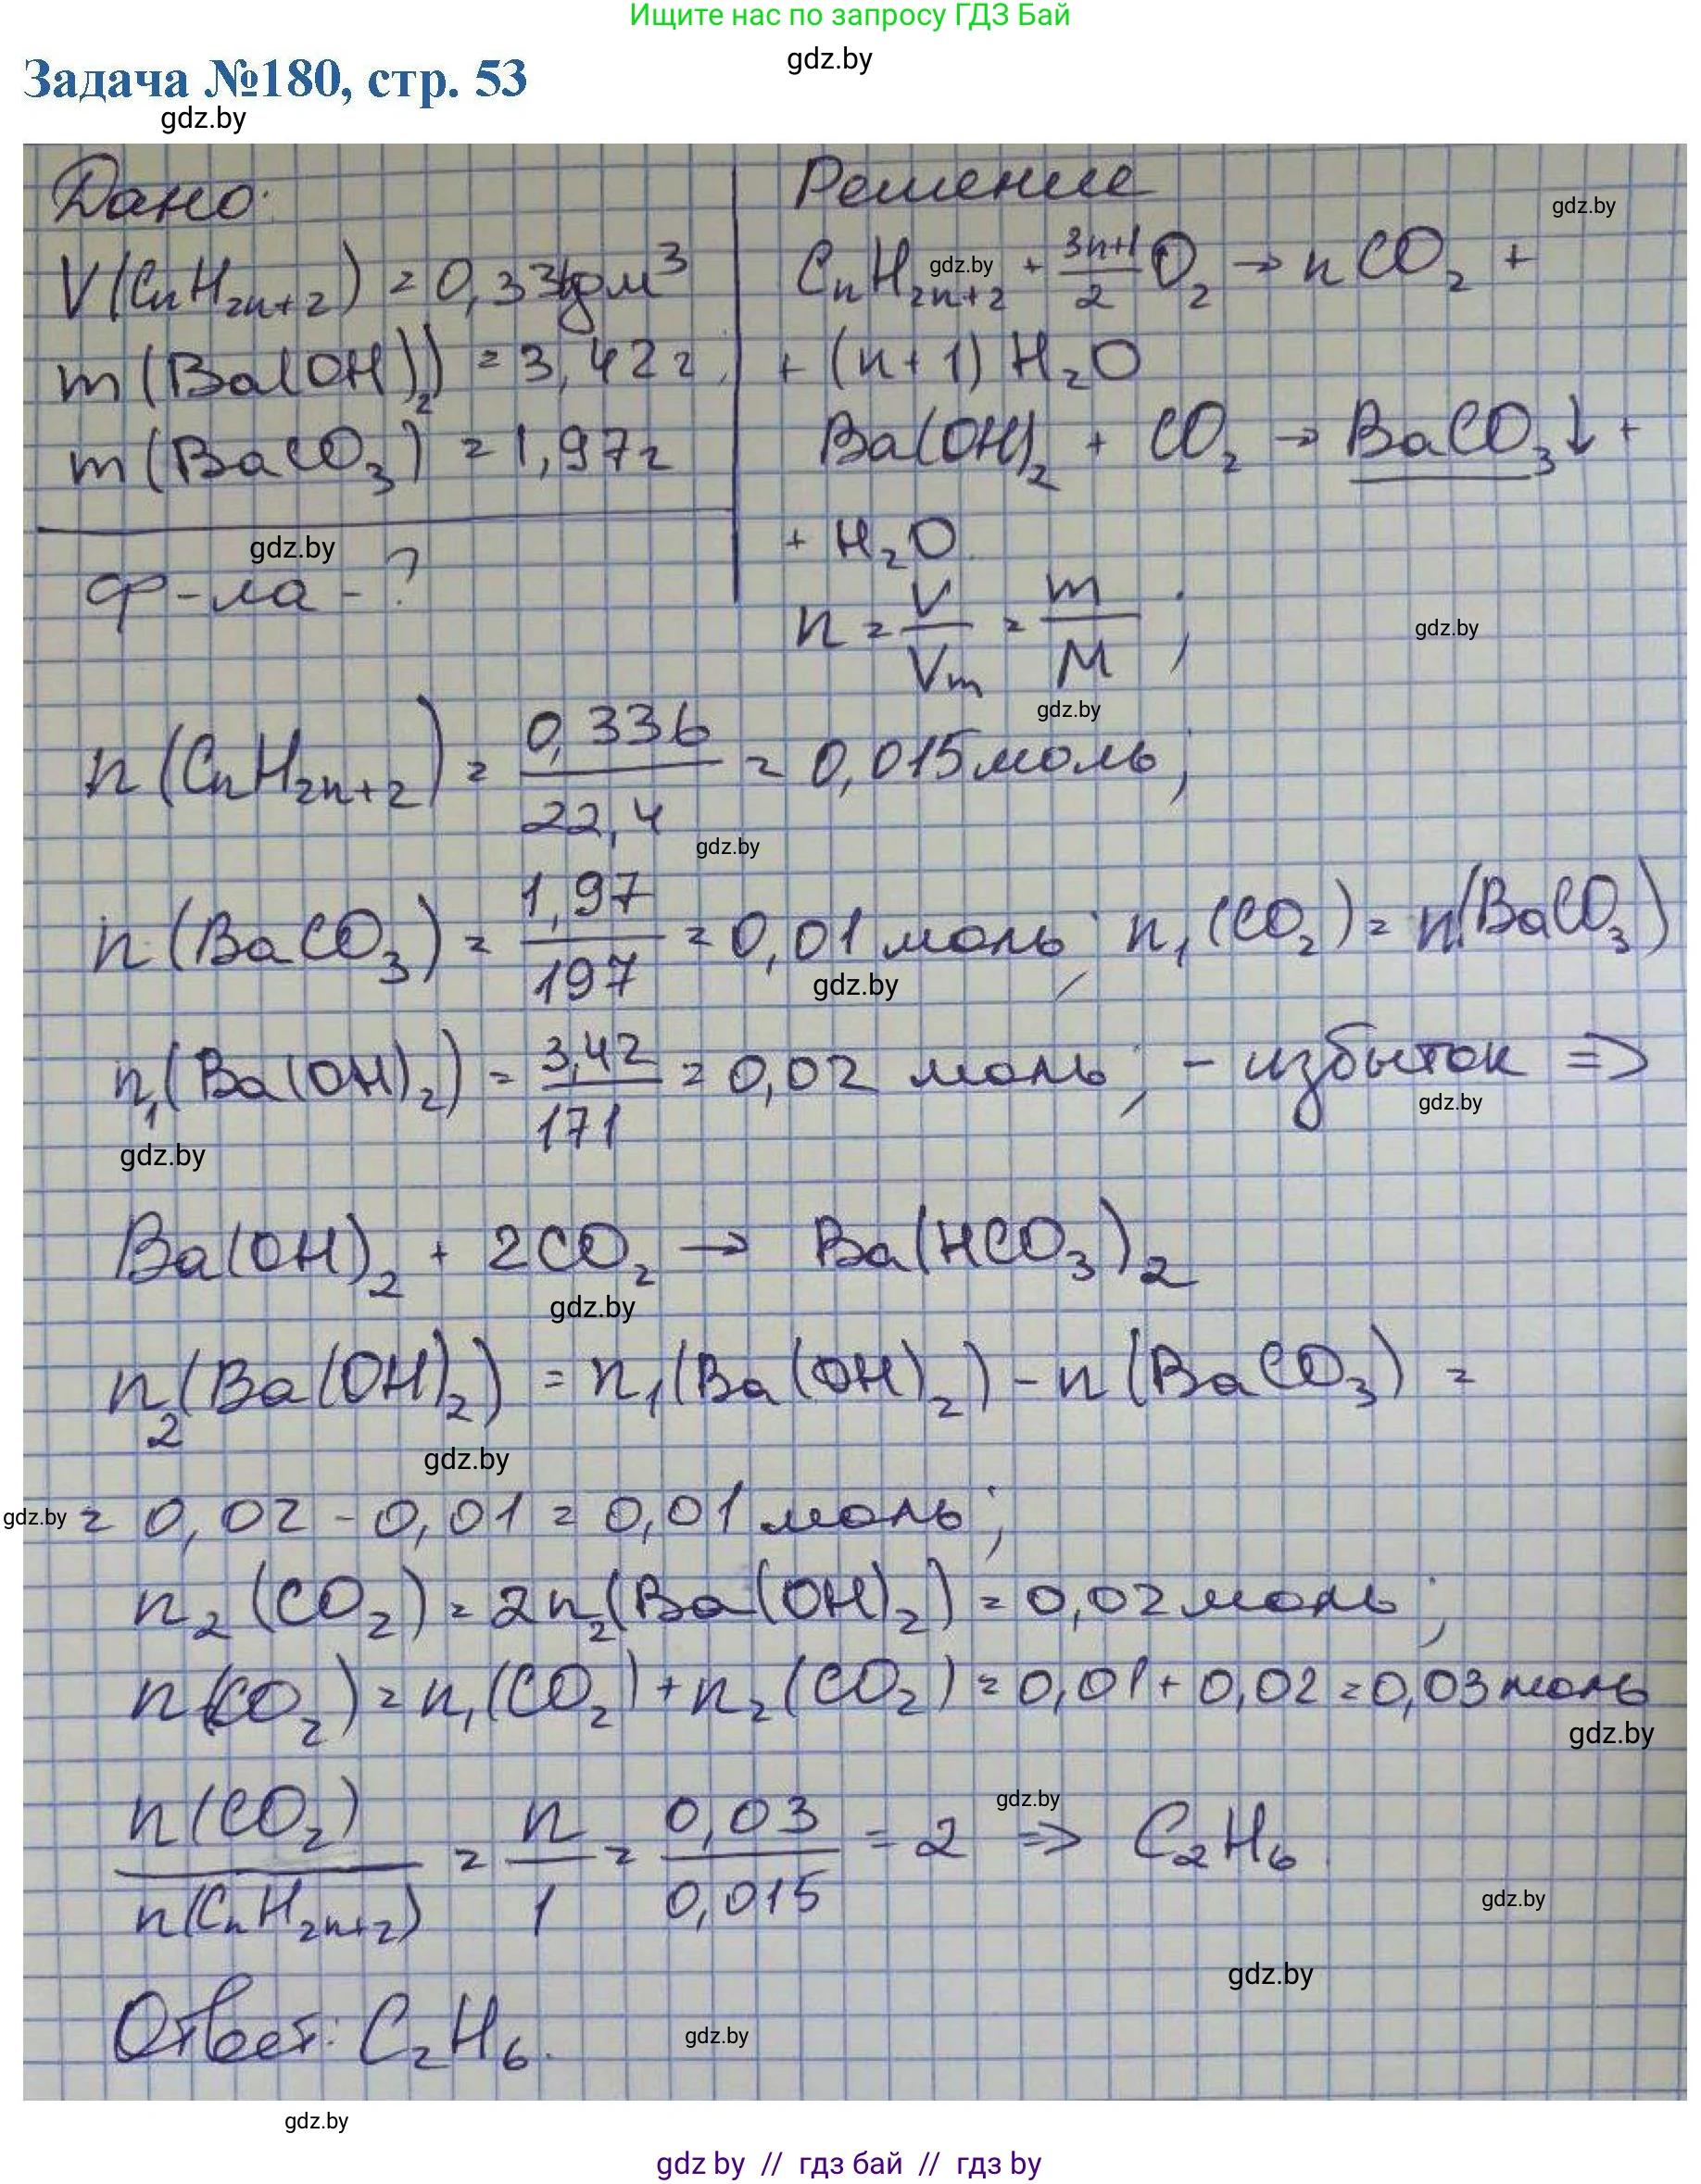 Ищите нас по запросу ГДЗ Бай
gdz.by
Задача №180, стр. 53
gdz.by
Дано:
V(CnH2n+2) = 0,336 дм³
m(Ba(OH)2) = 3,42 г
m(BaCO3) = 1,97 г
gdz.by
ф-ла - ?
Решение
gdz.by
CnH2n+2 + (3n+1)/2 O2 → nCO2 +
gdz.by
+ (n+1)H2O
Ba(OH)2 + CO2 → BaCO3↓ +
+ H2O
n = V/Vm = m/M ;
gdz.by
gdz.by
n(CnH2n+2) = 0,336/22,4 = 0,015 моль;
gdz.by
n(BaCO3) = 1,97/197 = 0,01 моль; n1(CO2) = n(BaCO3)
gdz.by
n1(Ba(OH)2) = 3,42/171 = 0,02 моль; - избыток ⇒
gdz.by
gdz.by
Ba(OH)2 + 2CO2 → Ba(HCO3)2
gdz.by
n2(Ba(OH)2) = n1(Ba(OH)2) - n(BaCO3) =
gdz.by
gdz.by
= 0,02 - 0,01 = 0,01 моль;
n2(CO2) = 2n2(Ba(OH)2) = 0,02 моль;
n(CO2) = n1(CO2) + n2(CO2) = 0,01 + 0,02 = 0,03 моль
gdz.by
gdz.by
n(CO2)/n(CnH2n+2) = n/1 = 0,03/0,015 = 2 ⇒ C2H6
gdz.by
gdz.by
Ответ: C2H6.
gdz.by
gdz.by
gdz by // гдз бай // гдз by